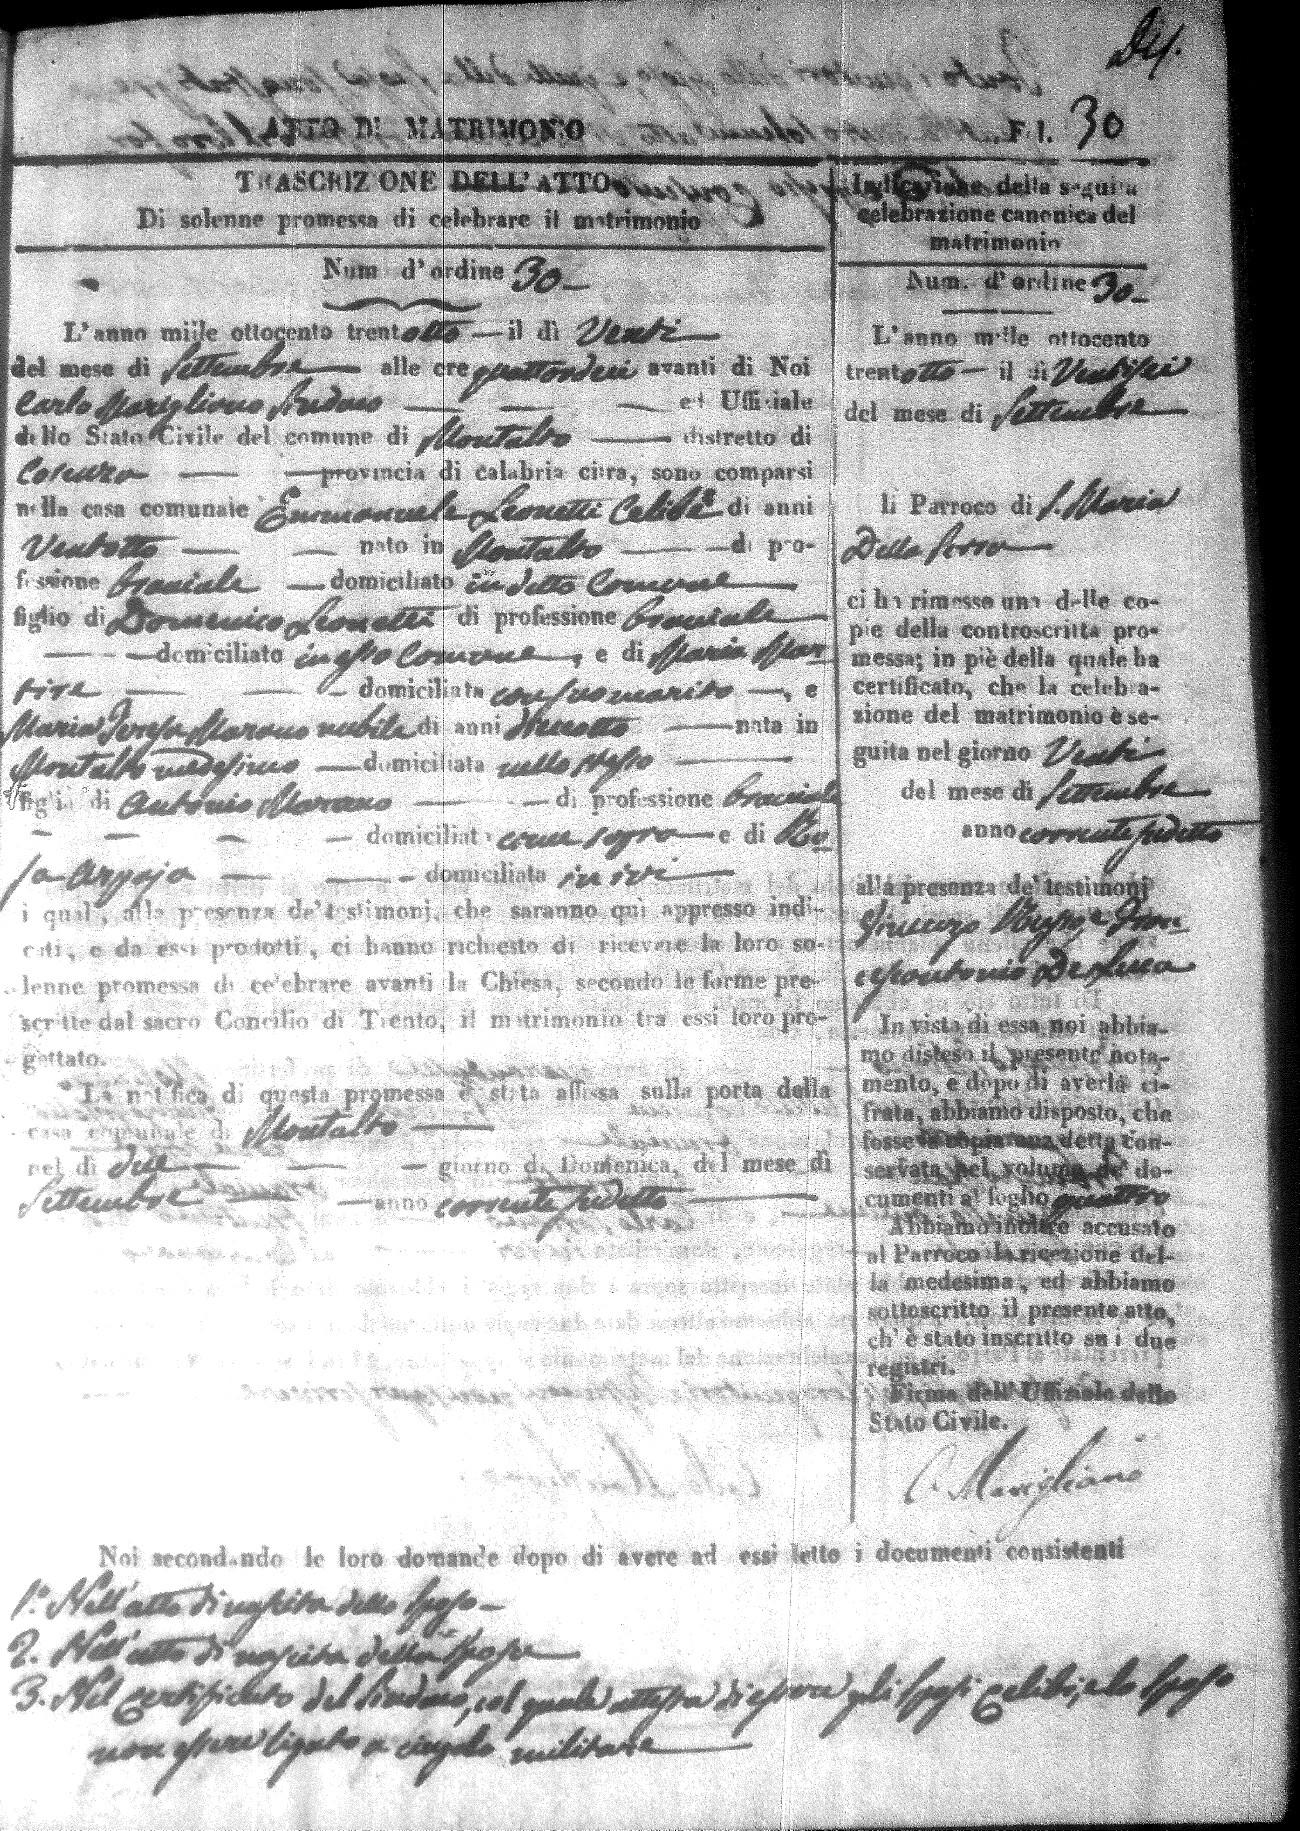 ATTO DI MATRIMONIO
F I. 30
TRASCRIZIONE DELL'ATTO
Di solenne promessa di celebrare il matrimonio
Num d'ordine 30
L'anno mille ottocento trentotto — il dì Venti
del mese di Settembre alle ore quattordeci avanti di Noi
Carlo Marigliano Sindaco ed Ufficiale
dello Stato Civile del comune di Montalto distretto di
Cosenza provincia di calabria citra, sono comparsi
nella casa comunale Emmanuele Leonetti Celibe di anni
Ventotto nato in Montalto di pro-
fessione bracciale domiciliato in detto Comune
figlio di Domenico Leonetti di professione bracciale
domiciliato in esso Comune, e di Maria Mar-
tire domiciliata con suo marito, e
Maria Teresa Morano nubile di anni diecotto nata in
Montalto medesimo domiciliata nello stesso
figlia di Antonio Morano di professione bracciale
domiciliato come sopra e di Ro-
sa Arpaja domiciliata in ivi
i quali, alla presenza de' testimonj, che saranno qui appresso indi-
cati, e da essi prodotti, ci hanno richiesto di ricevere la loro so-
lenne promessa di celebrare avanti la Chiesa, secondo le forme pre-
scritte dal sacro Concilio di Trento, il matrimonio tra essi loro pro-
gettato.
La notifica di questa promessa è stata affissa sulla porta della
casa comunale di Montalto
nel dì due giorno di Domenica, del mese di
Settembre anno corrente sudetto
Indicazione della seguita
celebrazione canonica del
matrimonio
Num. d'ordine 30
L'anno mille ottocento
trentotto — il dì Ventisei
del mese di Settembre
Il Parroco di S. Maria
Della Serra
ci ha rimesso una delle co-
pie della controscritta pro-
messa; in piè della quale ha
certificato, che la celebra-
zione del matrimonio è se-
guita nel giorno Venti
del mese di Settembre
anno corrente sudetto
alla presenza de' testimonj
Vincenzo e Fran-
cescantonio De Luca
In vista di essa noi abbia-
mo disteso il presente nota-
mento, e dopo di averla ci-
frata, abbiamo disposto, che
fosse la copia una detta con-
servata nel volume de' do-
cumenti al foglio quattro
Abbiamo inoltre accusato
al Parroco la ricezione del-
la medesima, ed abbiamo
sottoscritto il presente atto,
ch'è stato inscritto su i due
registri.
Firma dell'Uffiziale dello
Stato Civile.
C. Marigliano
Noi secondando le loro domande dopo di avere ad essi letto i documenti consistenti
1.° Nell'atto di nascita dello sposo
2. Nell'atto di nascita della sposa
3. Nel certificato del Sindaco, col quale attesta di essere gli sposi celibi, e lo sposo
non essere ligato a cingolo militare